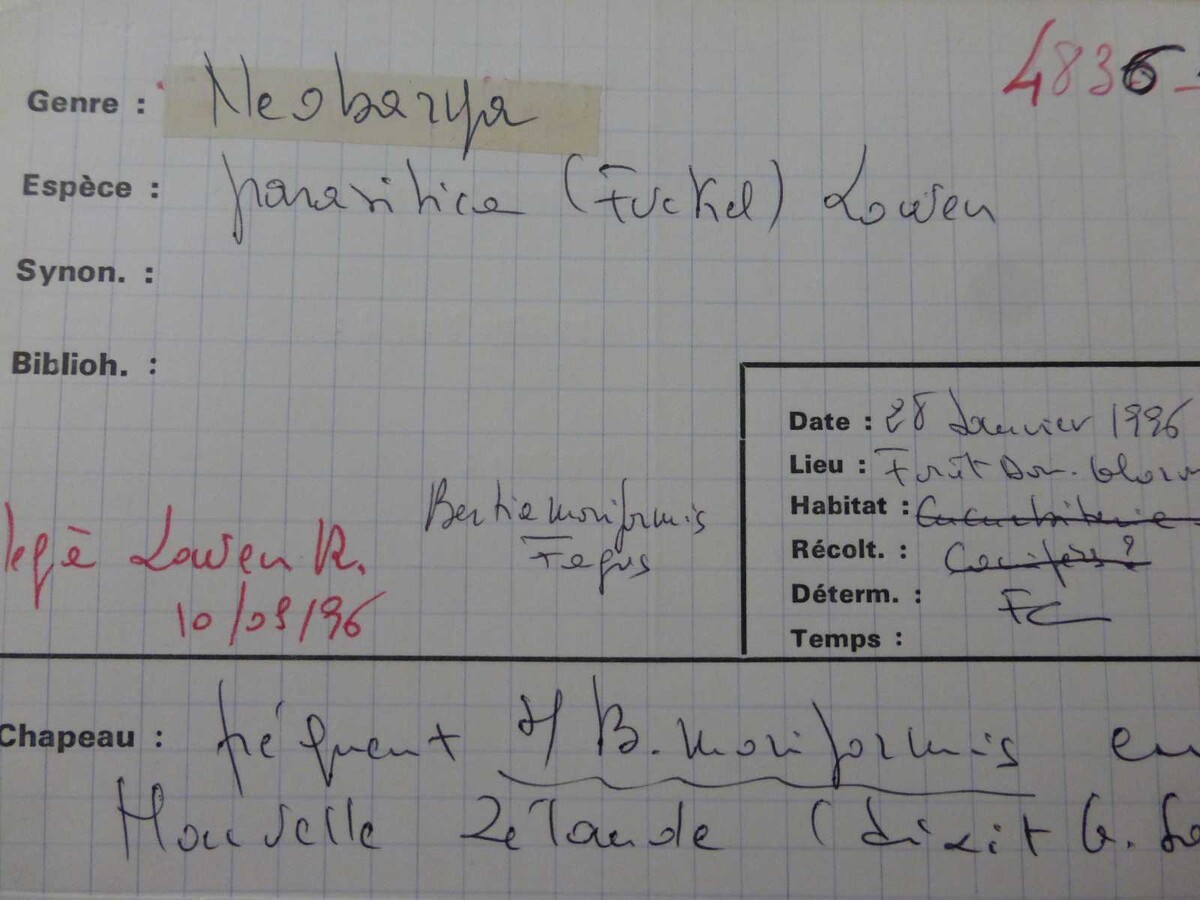 4836
Genre : Neobarya
Espèce : parasitica (Fuckel) Lowen
Synon. :
Biblioh. :
Date : 28 Janvier 1996
Lieu : Forêt Dom.
Habitat :
Récolt. :
Déterm. : FC
Temps :
Bertia moriformis
Fagus
Lowen R.
10/09/96
Chapeau : fréquent s/ B. moriformis en
Nouvelle Zelande (dixit G.